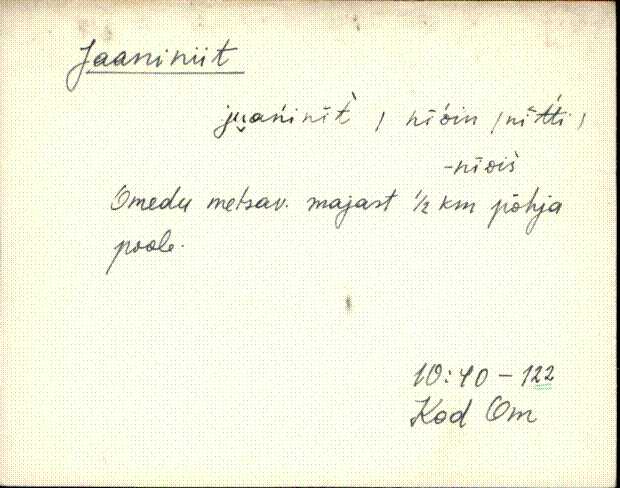 Jaaniniit
juańinīt̀ / nīoin / nītti /
-nīois̀
Omedu metsav. majast ½ km põhja
poole.
10:40 - 122
Kod Om